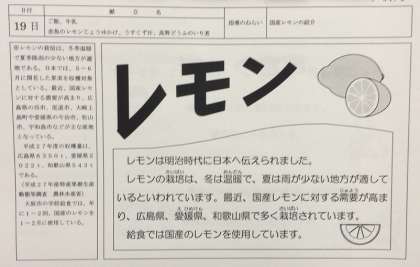 日付
献立名
指導のねらい
国産レモンの紹介
19日
ご飯、牛乳
赤魚のレモンじょうゆかけ、うすくず汁、高野どうふのいり煮
レモンの栽培は、冬季温暖
で夏季降雨の少ない地方が適
地である。日本では、5~6
月に開花した果実を収穫対象
としている。最近、国産レモ
ンに対する需要が高まり、広
島県の呉市、尾道市、大崎上
島町や愛媛県の今治市、松山
市、宇和島市などが主な産地
となっている。
平成27年産の収穫量は、
(平成27年産特産果樹生産
動態等調査 農林水産省)
大阪市の学校給食では、年
に1~2回、国産のレモンを
1~2月に使用している。
レモン
レモンは明治時代に日本へ伝えられました。
レモンの栽培は、冬は温暖で、夏は雨が少ない地方が適して
いるといわれています。最近、国産レモンに対する需要が高ま
り、広島県、愛媛県、和歌山県で多く栽培されています。
給食では国産のレモンを使用しています。